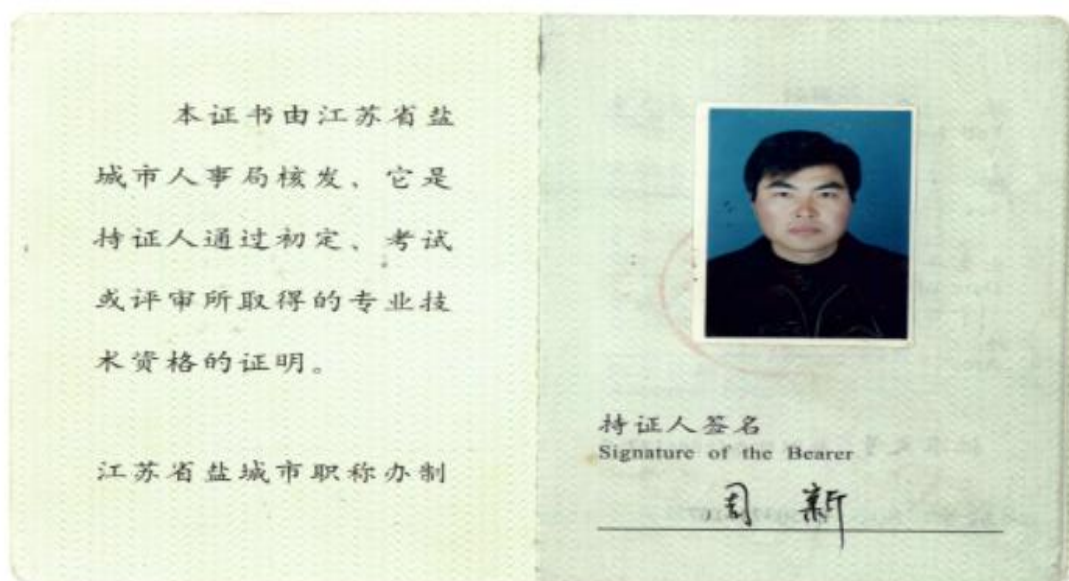 本证书由江苏省盐
城市人事局核发、它是
持证人通过初定、考试
或评审所取得的专业技
术资格的证明。
江苏省盐城市职称办制
持证人签名
Signature of the Bearer
周 新